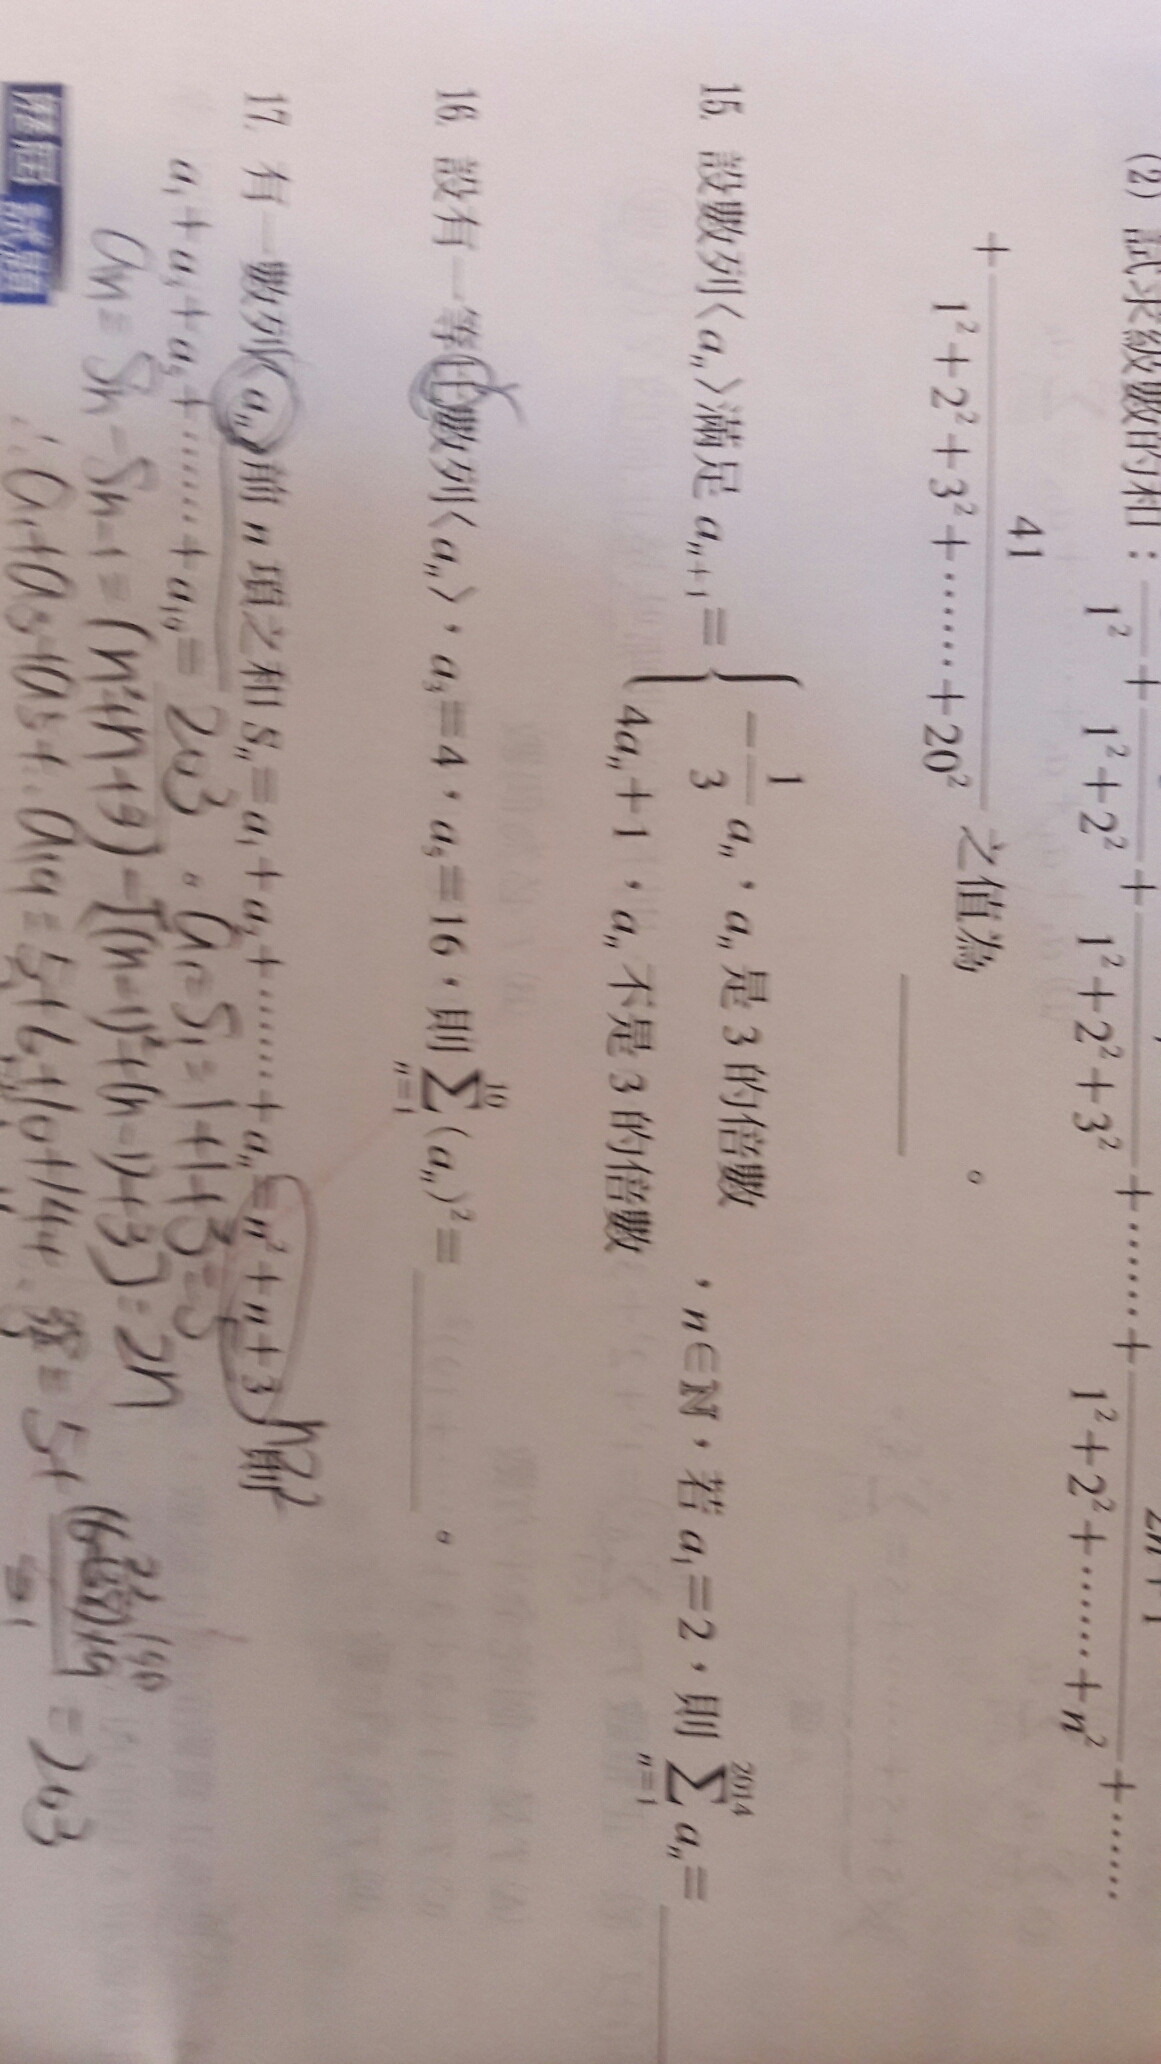 (2) 試求級數的和：/1² + /(1²+2²) + /(1²+2²+3²) + …… + (2n+1)/(1²+2²+……+n²) + ……
+ 41/(1²+2²+3²+……+20²) 之值為______。
15. 設數列〈aₙ〉滿足 aₙ₊₁ = { -1/3 aₙ，aₙ 是 3 的倍數
4aₙ+1，aₙ 不是 3 的倍數 ，n∈ℕ，若 a₁=2，則 Σ(n=1 to 2014) aₙ = ______
16. 設有一等比數列〈aₙ〉，a₃=4，a₅=16，則 Σ(n=1 to 10) (aₙ)² = ______。
17. 有一數列〈aₙ〉前 n 項之和 Sₙ=a₁+a₂+……+aₙ=n²+n+3，則 n≥2
a₁+a₃+a₅+……+a₁₉= 203 。 a₁=S₁=1+1+3=5
an = Sn - Sn-1 = (n²+n+3) - [(n-1)²+(n-1)+3] = 2n
∴ a₁+a₃+a₅+..a₁₉ = 5+6+10+14+ = 5+ = 203
歷屆試題